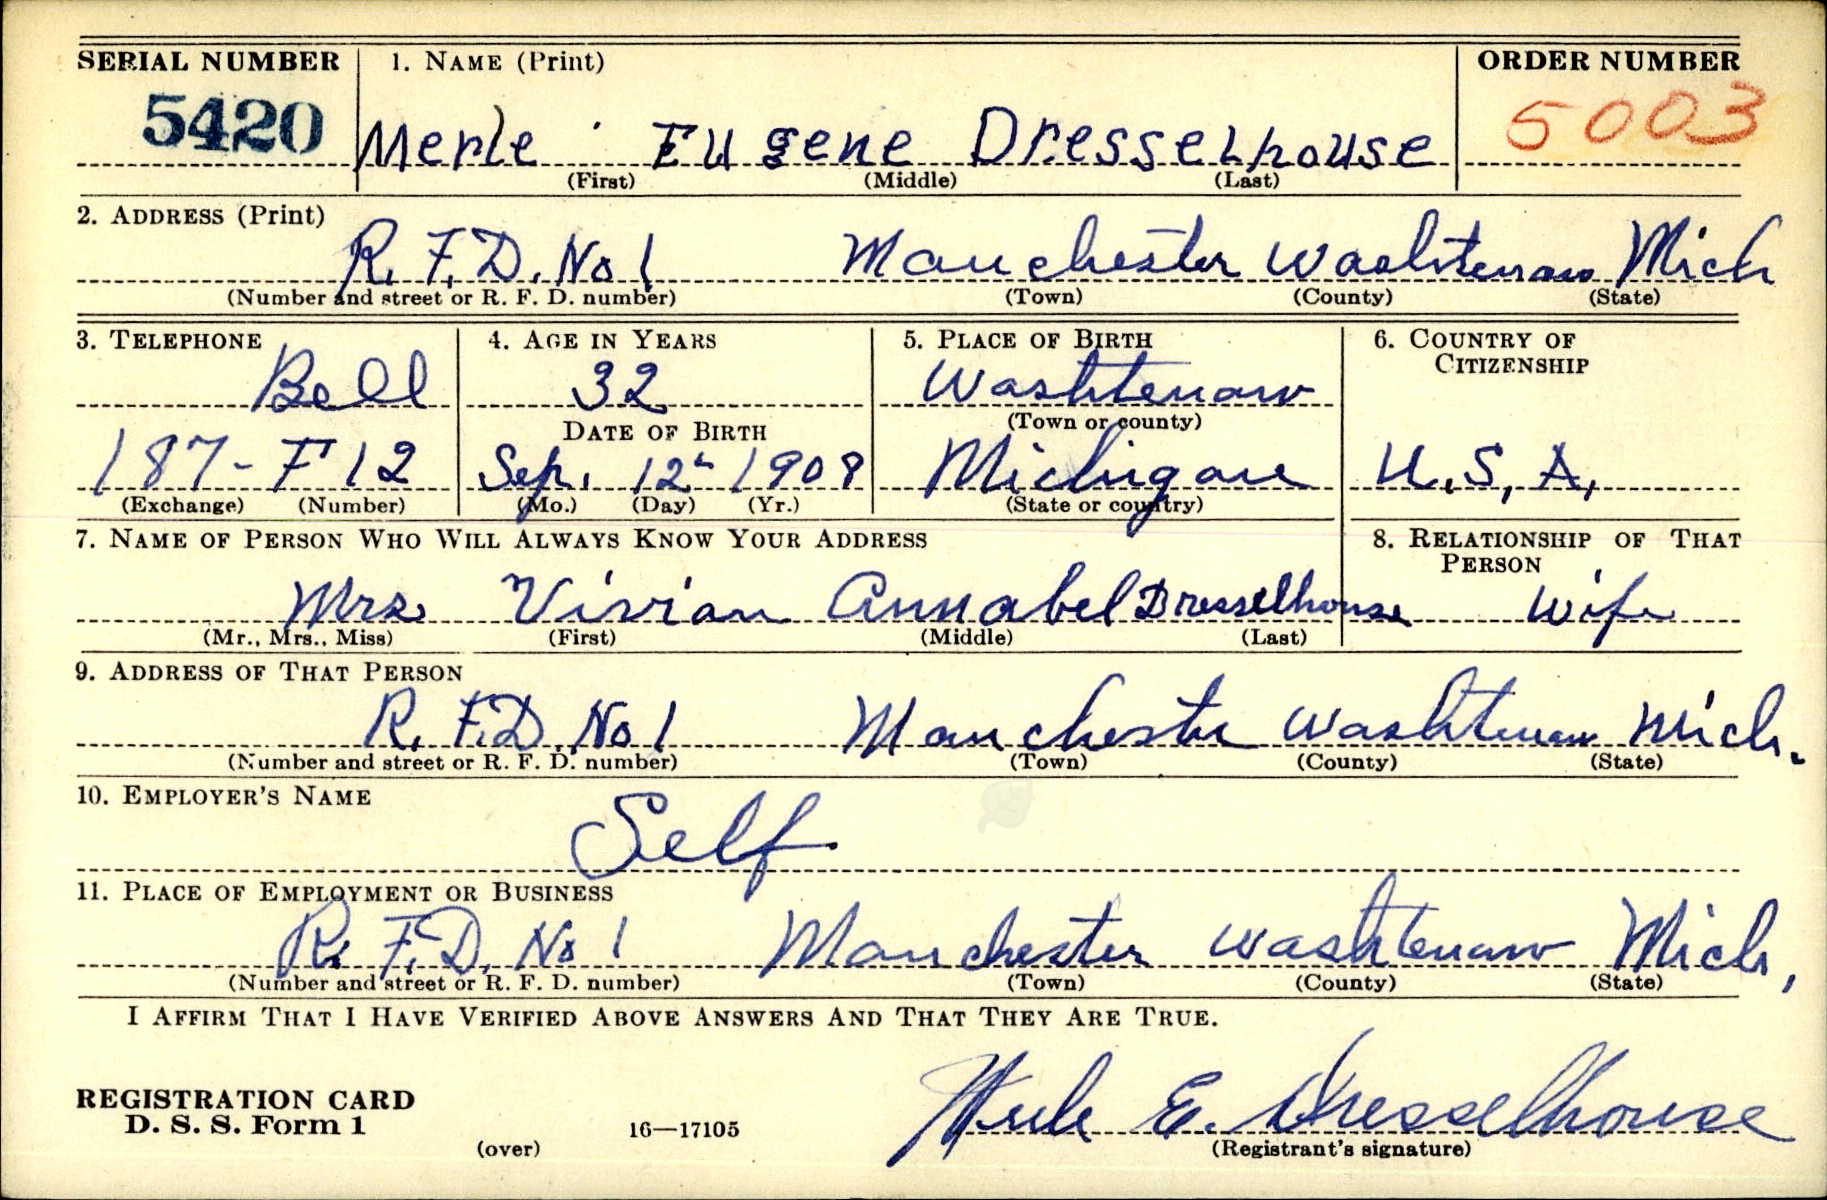 SERIAL NUMBER 1. NAME (Print) ORDER NUMBER
5420 Merle Eugene Dresselhouse 5003
(First) (Middle) (Last)
2. ADDRESS (Print)
R. F. D. No 1 Manchester Washtenaw Mich
(Number and street or R. F. D. number) (Town) (County) (State)
3. TELEPHONE 4. AGE IN YEARS 5. PLACE OF BIRTH 6. COUNTRY OF CITIZENSHIP
Bell 32 Washtenaw
DATE OF BIRTH (Town or county)
187-F 12 Sep. 12 1908 Michigan U.S.A.
(Exchange) (Number) (Mo.) (Day) (Yr.) (State or country)
7. NAME OF PERSON WHO WILL ALWAYS KNOW YOUR ADDRESS 8. RELATIONSHIP OF THAT PERSON
Mrs Vivian Annabel Dresselhouse Wife
(Mr., Mrs., Miss) (First) (Middle) (Last)
9. ADDRESS OF THAT PERSON
R. F. D. No 1 Manchester Washtenaw Mich.
(Number and street or R. F. D. number) (Town) (County) (State)
10. EMPLOYER'S NAME
Self
11. PLACE OF EMPLOYMENT OR BUSINESS
R. F. D. No 1 Manchester Washtenaw Mich.
(Number and street or R. F. D. number) (Town) (County) (State)
I AFFIRM THAT I HAVE VERIFIED ABOVE ANSWERS AND THAT THEY ARE TRUE.
Merle E. Dresselhouse
REGISTRATION CARD
D. S. S. Form 1
(over) 16—17105 (Registrant's signature)